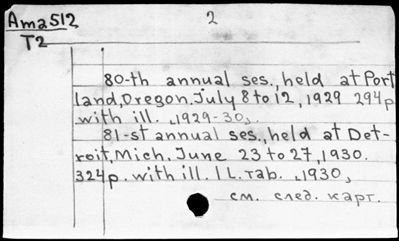 Ama512 2
T2
80-th annual ses., held at Port
land, Oregon. July 8 to 12, 1929 294p.
with ill. „1929-30„.
81-st annual ses., held at Det-
roit, Mich. June 23 to 27, 1930.
324p. with ill. 1 L. таб. „1930„
см. след. карт.